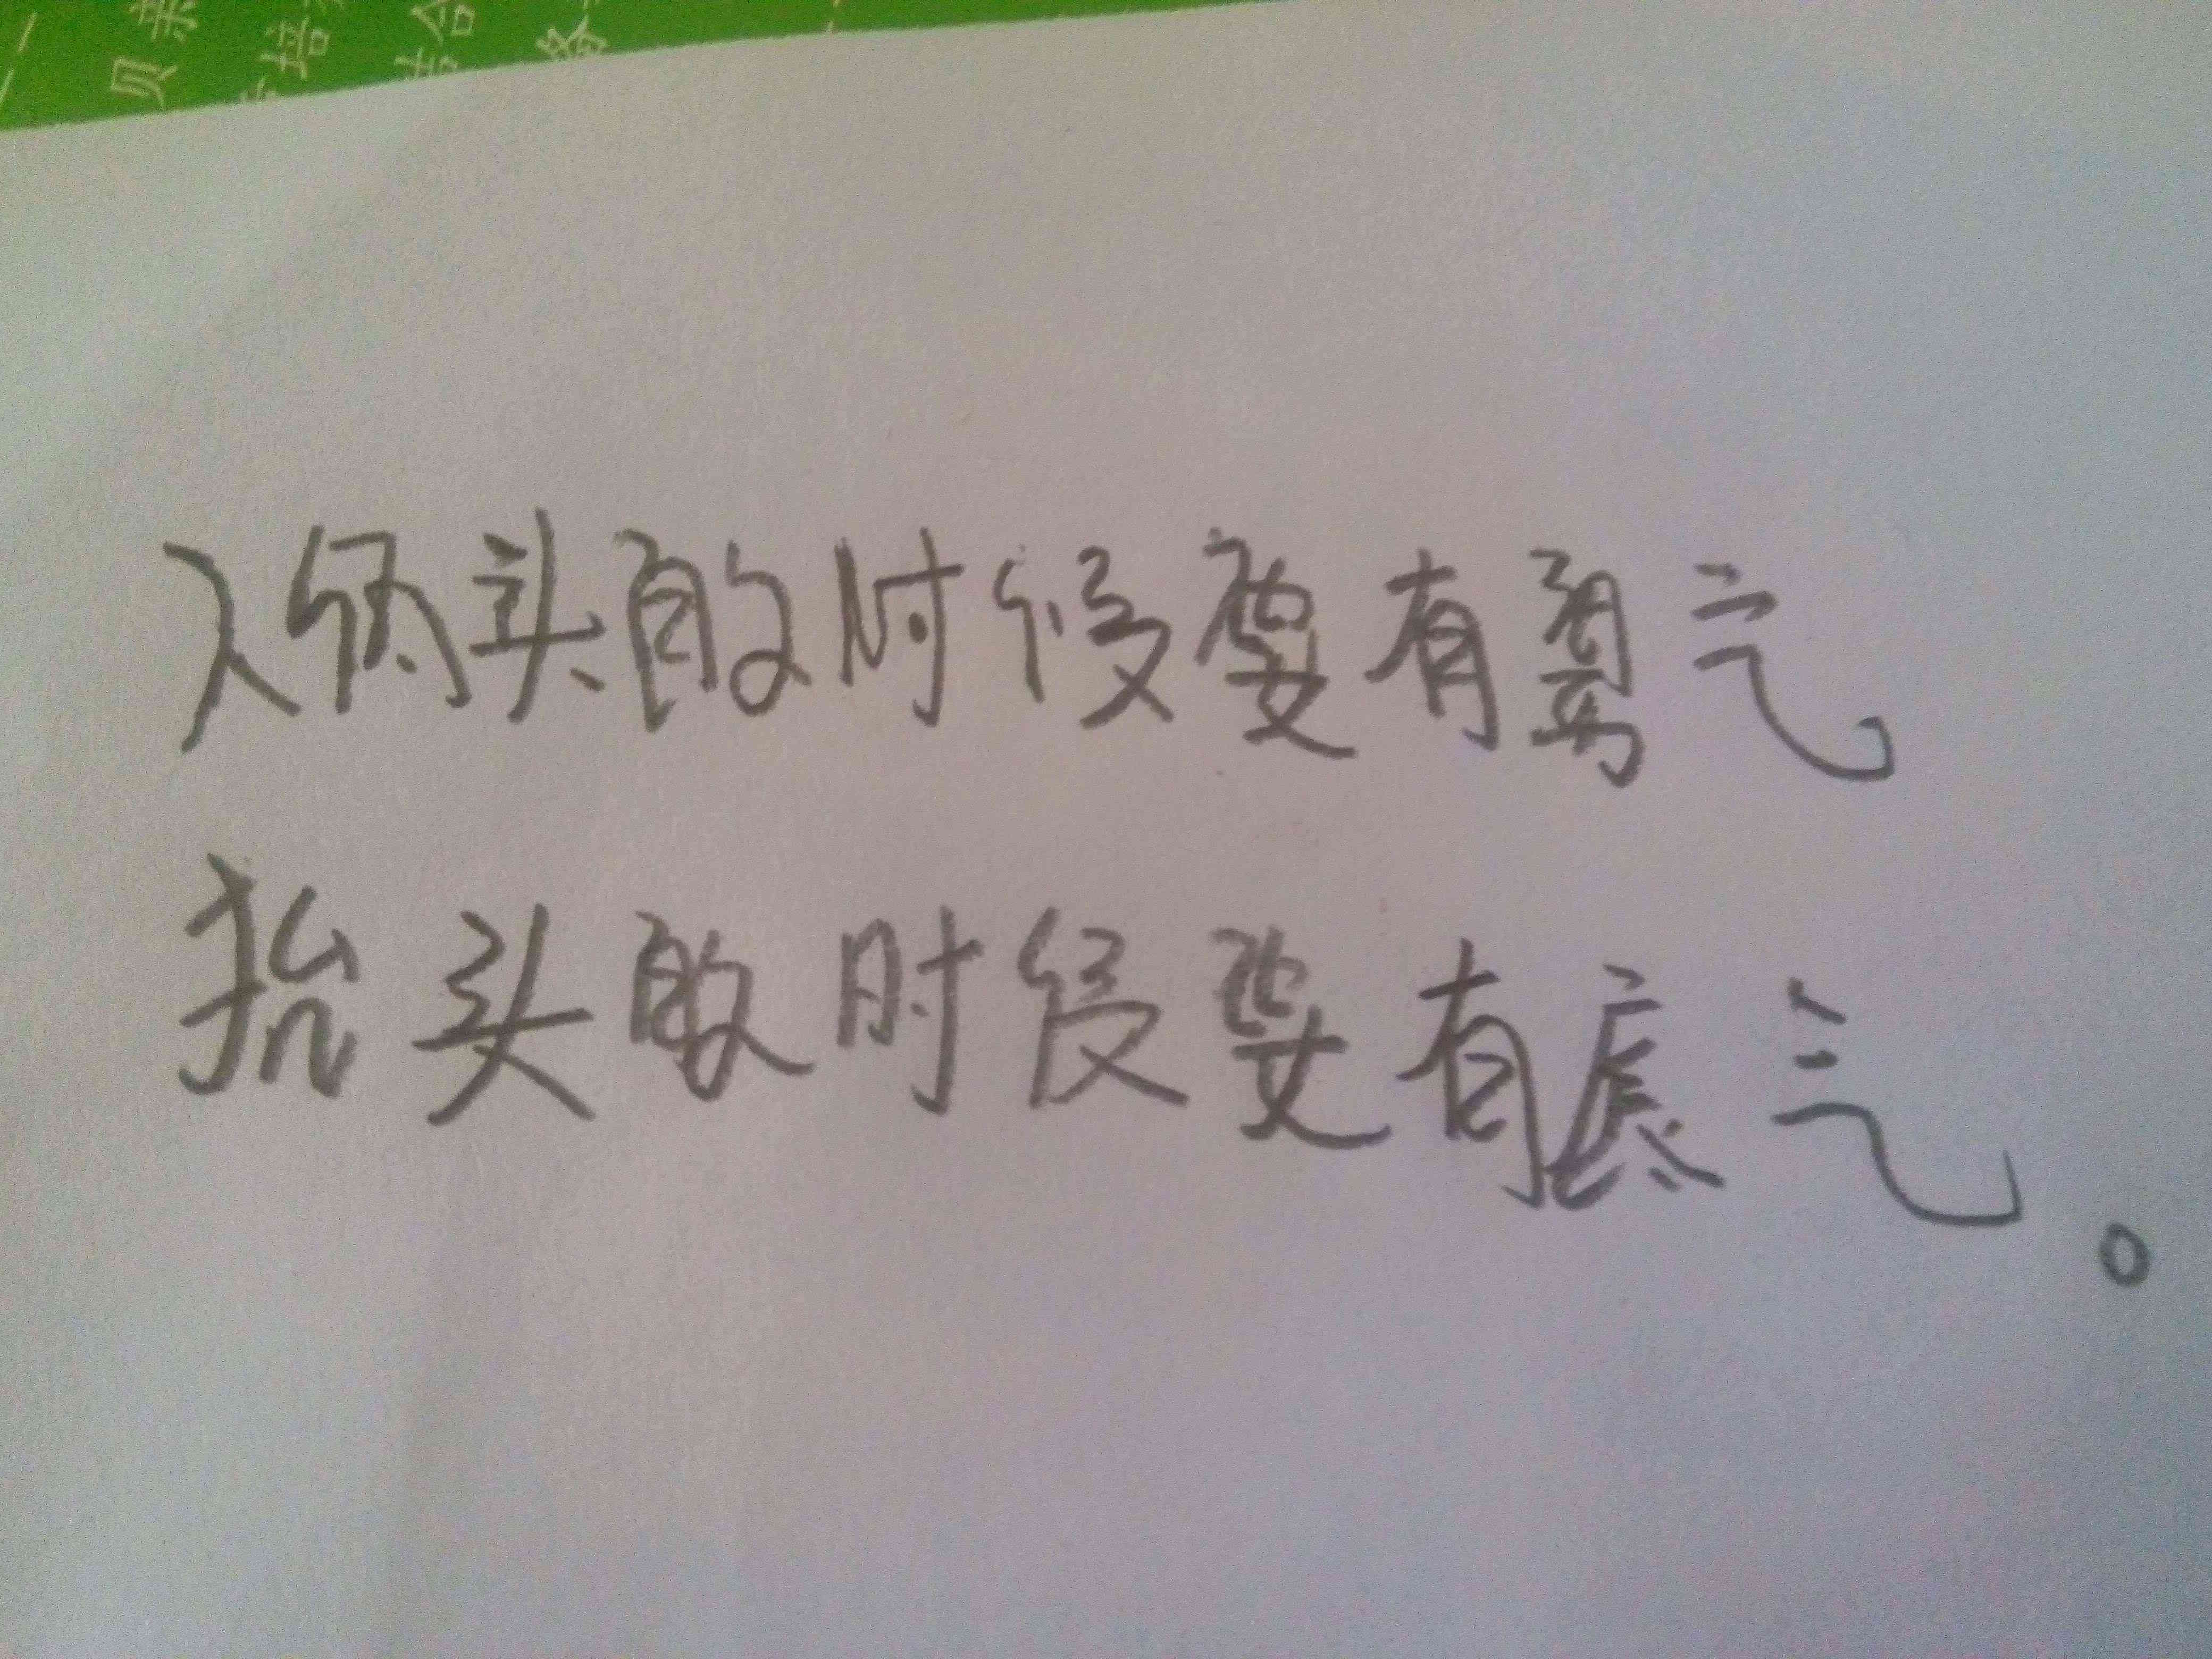 头的时候要有勇气
抬头的时候要有底气。